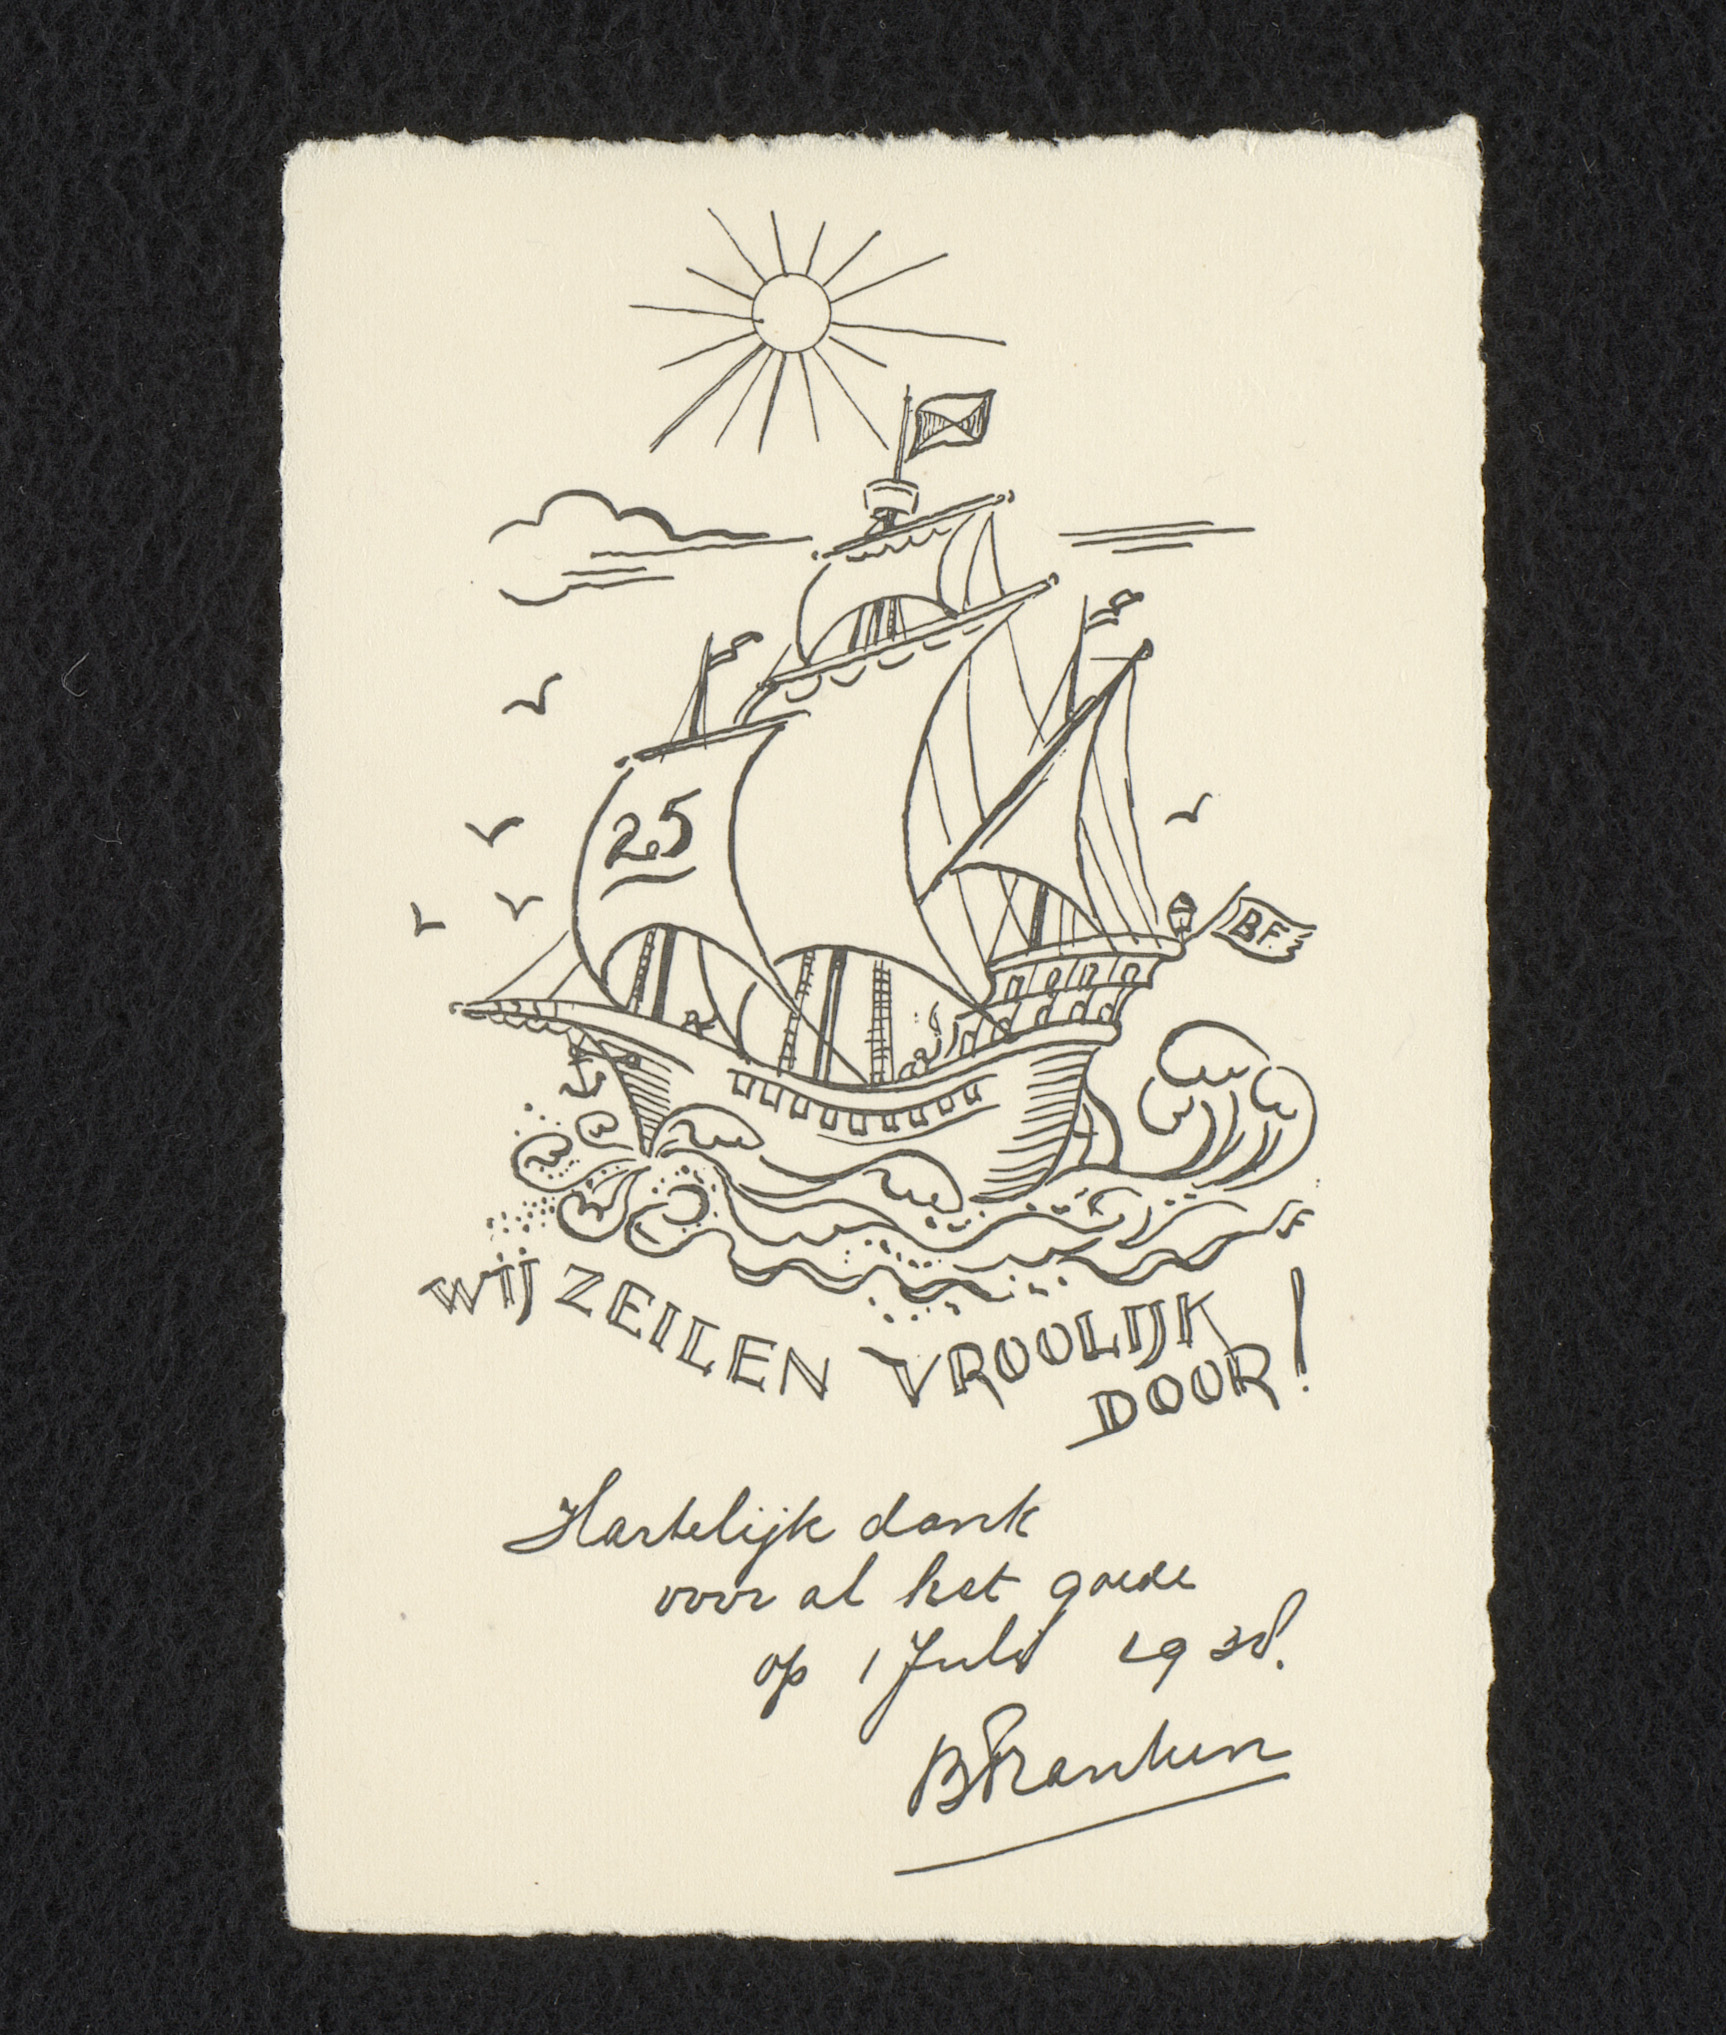 25
BF.
WIJ ZEILEN VROOLIJK
DOOR!
Hartelijk dank
voor al het goede
op 1 Juli 1938.
BFranken